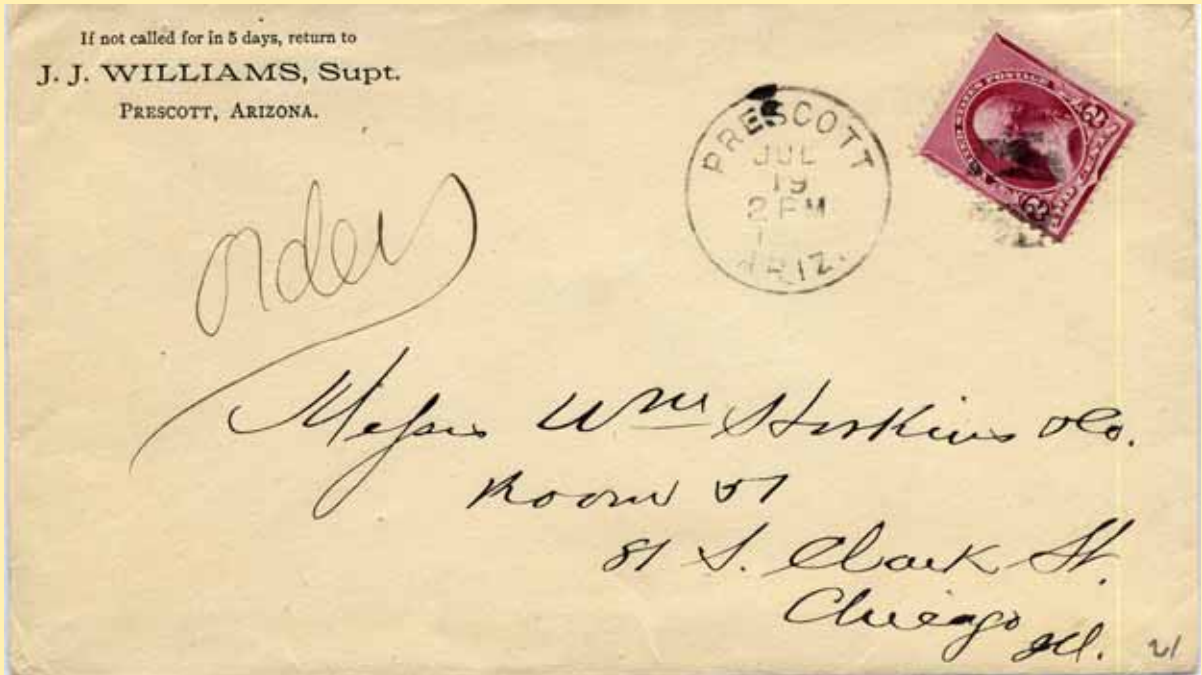 If not called for in 5 days, return to
J. J. WILLIAMS, Supt.
PRESCOTT, ARIZONA.
UNITED STATES POSTAGE
PRESCOTT
JUL
19
2 PM
ARIZ.
orders
Messrs Wm Hoskins & Co.
Room 57
81 S. Clark St.
Chicago
Ill.
21